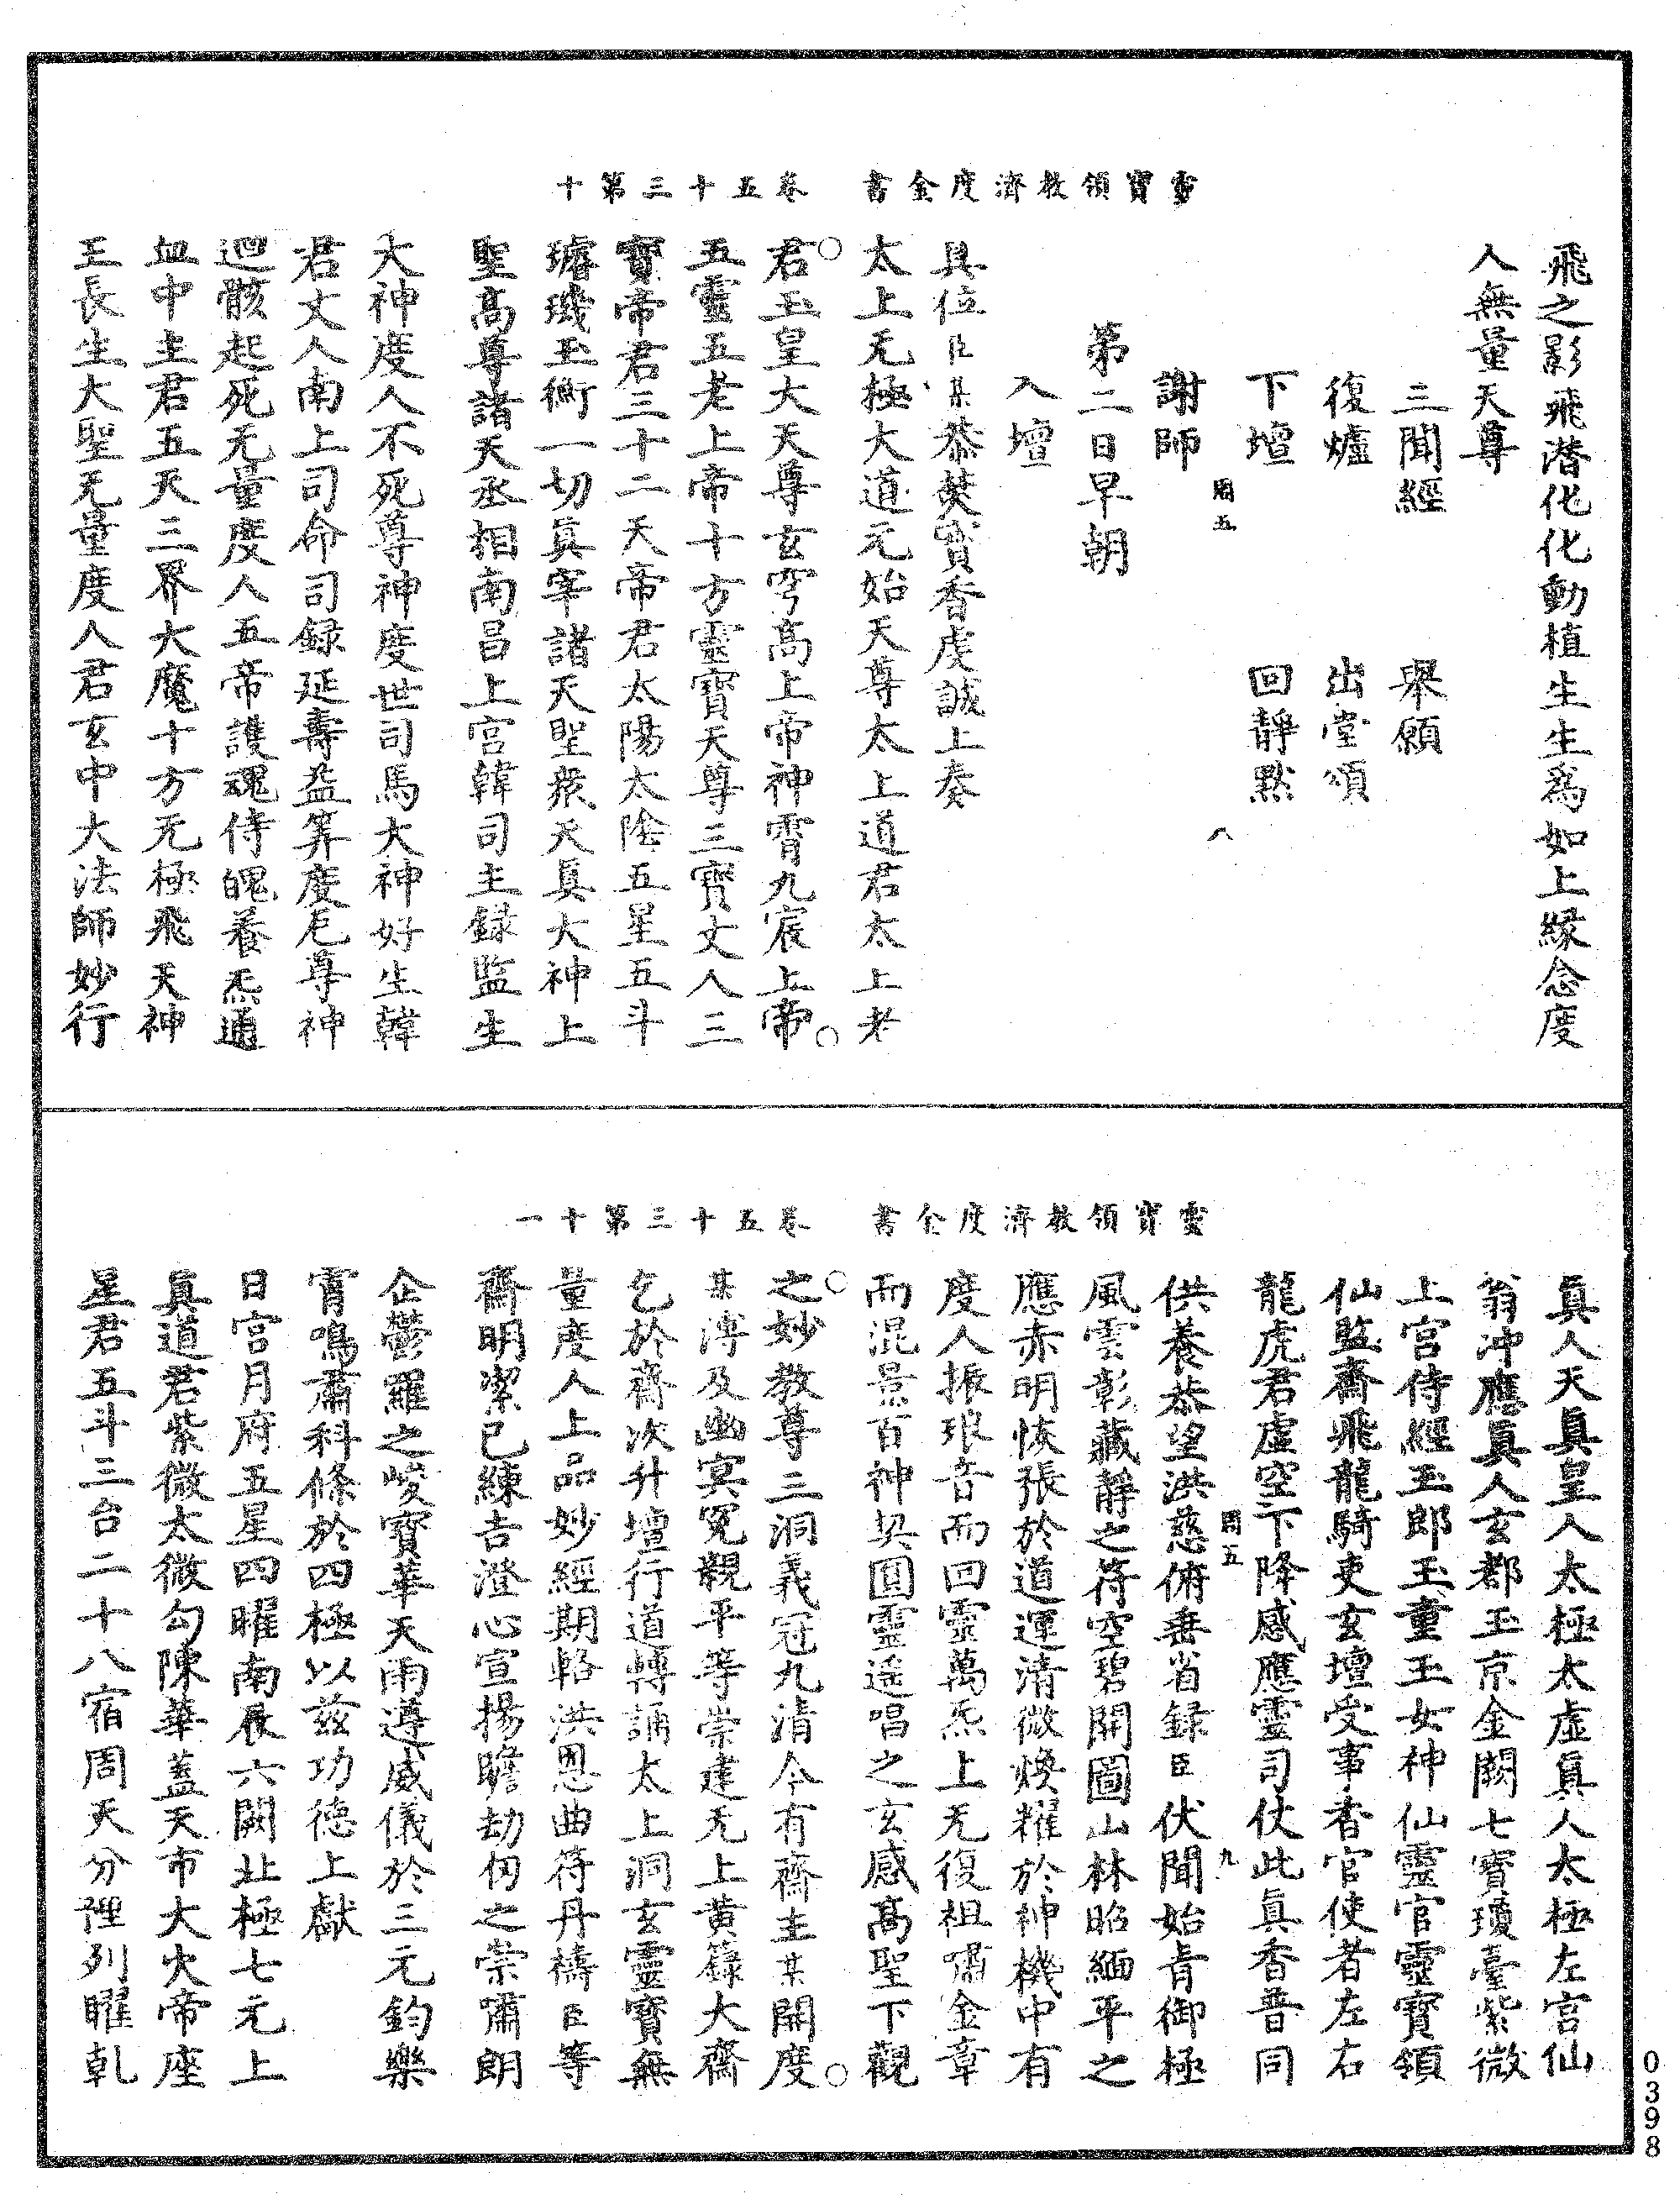 靈寶領教濟度金書　卷五十三第十
飛之影飛潛化化動植生生爲如上緣念度
人無量天尊
三聞經　舉願
復爐　出堂頌
下壇　回靜默
周五　八
謝師
第二日早朝
入壇
具位臣某恭焚寶香虔誠上奏
太上无極大道元始天尊太上道君太上老
君玉皇大天尊玄穹高上帝神霄九宸上帝
五靈五老上帝十方靈寶天尊三寶丈人三
寶帝君三十二天帝君太陽太陰五星五斗
璿璣玉衡一切眞宰諸天聖衆天眞大神上
聖高尊諸天丞相南昌上宮韓司主錄監生
大神度人不死尊神度世司馬大神好生韓
君丈人南上司命司錄延壽益筭度厄尊神
迴骸起死无量度人五帝護魂侍魄養炁通
血中主君五天三界大魔十方无極飛天神
王長生大聖无量度人君玄中大法師妙行
靈寶領教濟度金書　卷五十三第十一
眞人天眞皇人太極太虛眞人太極左宮仙
翁冲應眞人玄都玉京金闕七寶瓊臺紫微
上宮侍經玉郎玉童玉女神仙靈官靈寶領
仙監齋飛龍騎吏玄壇受事香官使者左右
龍虎君虛空下降感應靈司仗此眞香普同
周五　九
供養恭望洪慈俯垂省錄臣伏聞始青御極
風雲彰藏靜之符空碧開圖山林昭緬平之
應赤明恢張於道運清微煥耀於神機中有
度人振琅音而回靈萬炁上无復祖嘯金章
而混景百神契圓靈遥唱之玄感高聖下觀
之妙教尊三洞義冠九清今有齋主某開度
某漙及幽冥寃親平等崇建无上黃籙大齋
乞於齋次升壇行道轉誦太上洞玄靈寶無
量度人上品妙經期輅洪恩曲符丹禱臣等
齋明潔已練吉澄心宣揚瞻劫仞之崇嘯朗
企鬱羅之峻寶華天雨遵威儀於三元鈞樂
霄鳴肅科條於四極以兹功德上獻
日宮月府五星四曜南辰六闕北極七元上
眞道君紫微太微勾陳華蓋天市大火帝座
星君五斗三台二十八宿周天分徑列曜乹
0398